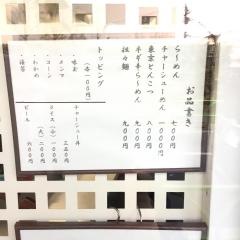 お品書き
らーめん 七〇〇円
チャーシューめん 一〇〇〇円
東京とんこつ 八〇〇円
平ギ牛らーめん 九〇〇円
担々麺 九〇〇円
トッピング
（各一〇〇円）
・味玉
・メンマ
・コーン
・わかめ
・海苔
チャーシュー丼 三五〇円
ライス（小） 一〇〇円
（大） 二〇〇円
ビール 六〇〇円